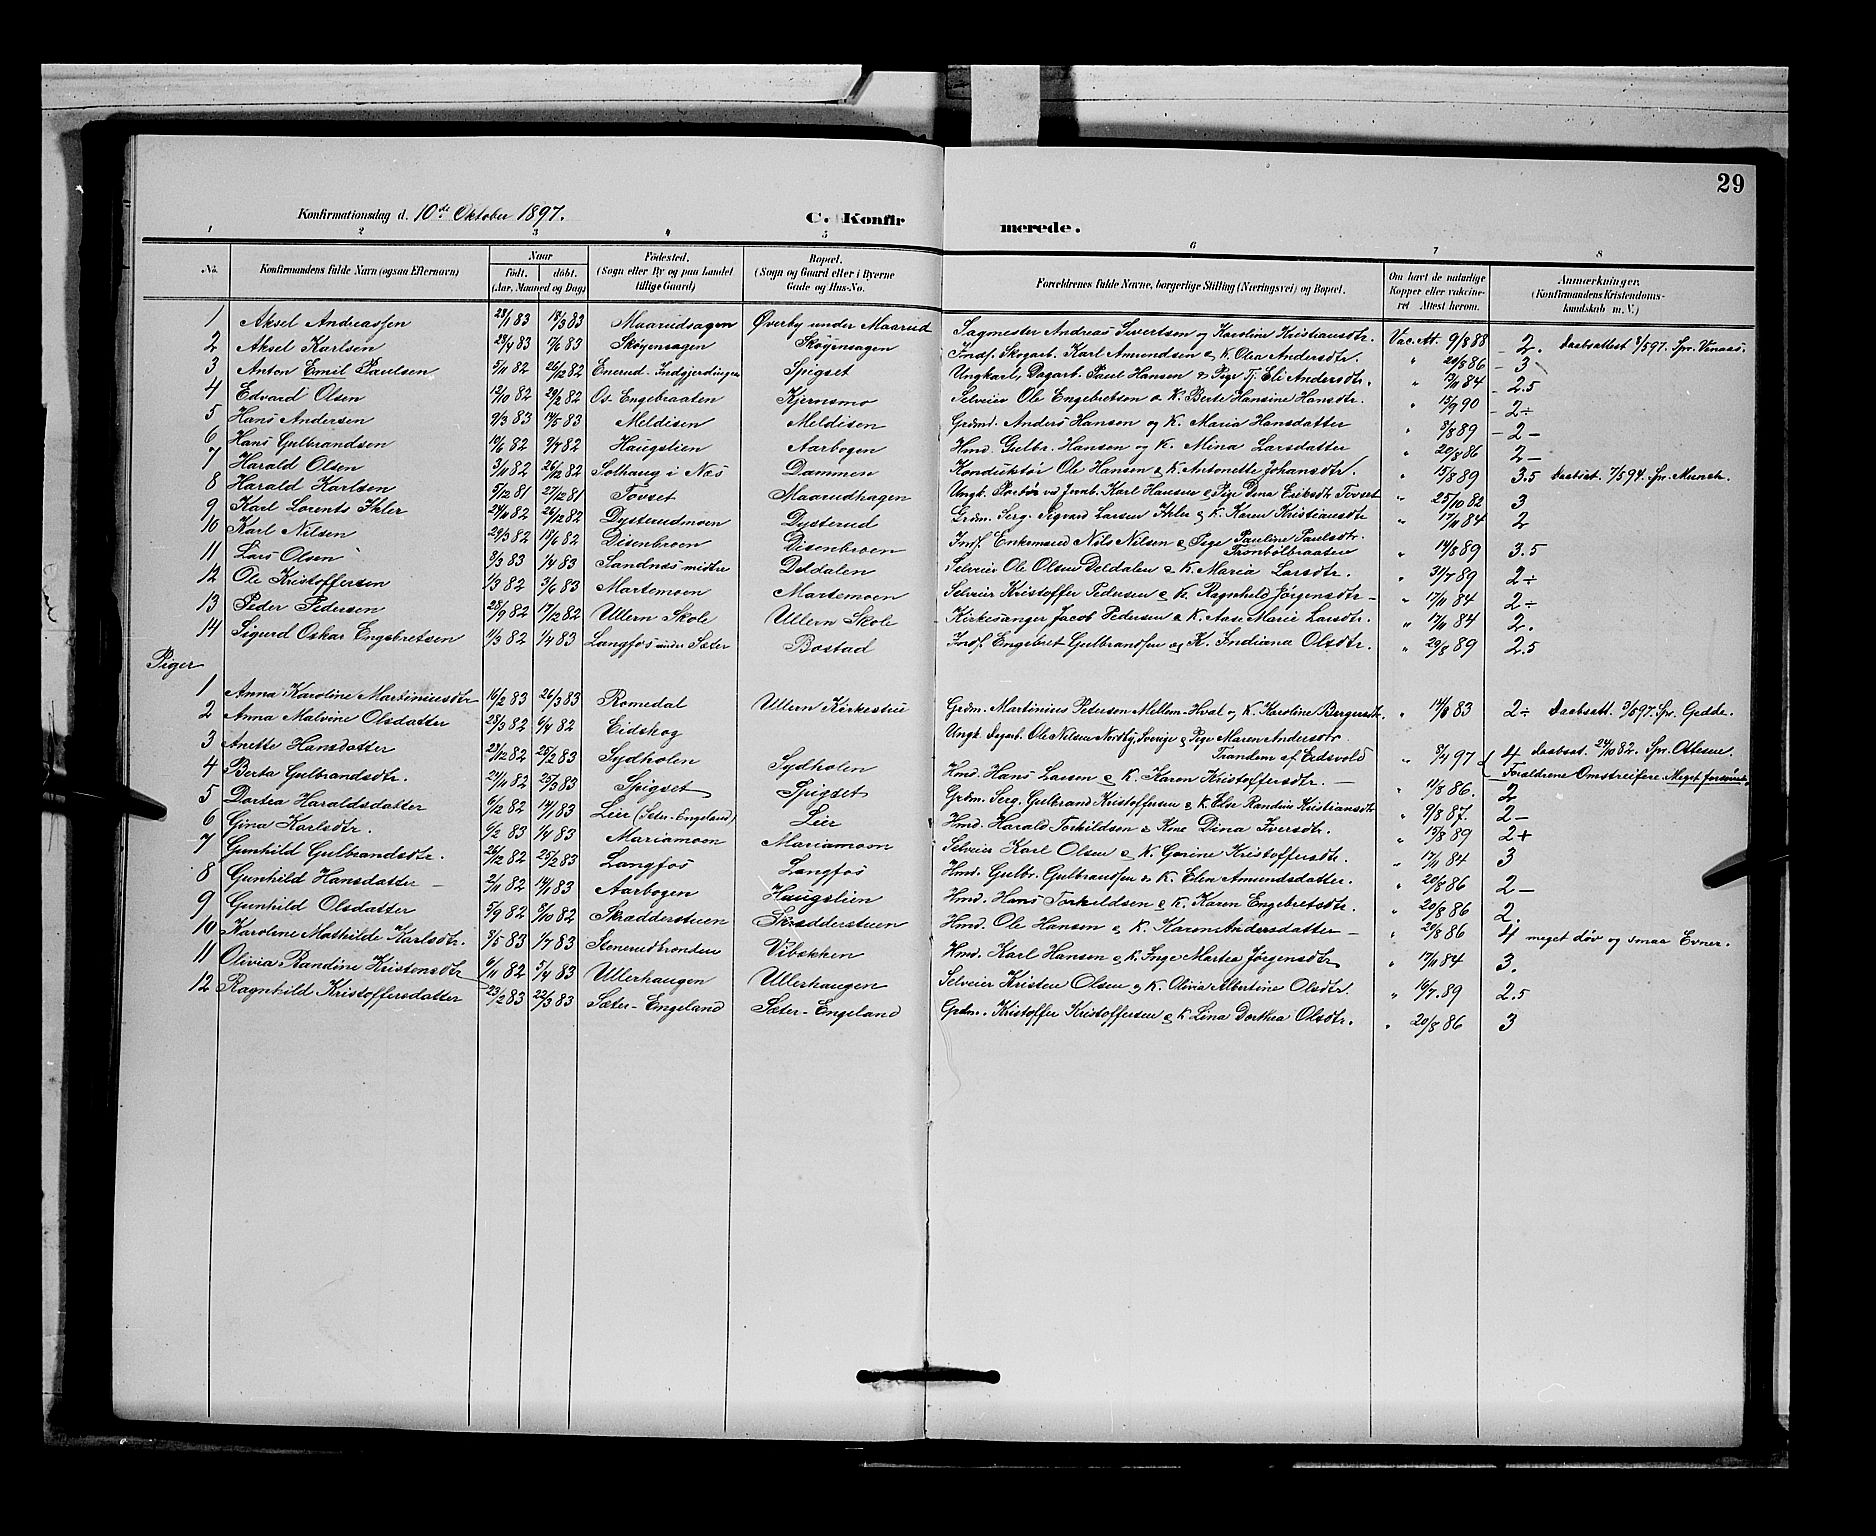 29
Konfirmationsdag d. 10de Oktober 1897. C. Konfirmerede.
1 2 3 4 5 6 7 8
No. Konfirmandens fulde Navn (ogsaa Efternavn) Naar født. døbt. (Aar, Maaned og Dag) Fødested. (Sogn eller By og paa Landet tillige Gaard) Bopæl. (Sogn og Gaard eller i Byerne Gade og Hus-No. Forældrenes fulde Navne, borgerlige Stilling (Næringsvei) og Bopæl. Om havt de naturlige Kopper eller vakcineret Attest herom. Anmærkninger. (Konfirmandens Kristendomskundskab m. V.)
1 Aksel Andreassen 28/1 83 18/3 83 Maarudsagen Øverby under Maarud Sagmester Andreas Sivertsen og Karoline Kristiansdtr. Vac. Att. 9/8 88 2. Daabsattest /5 97. Spr. Vinaas.
2 Aksel Karlsen 29/4 83 17/6 83 Skøyensagen Skøyensagen Inds. Skogarb. Karl Amundsen & K. Olia Andersdtr. " 20/8 86 3
3 Anton Emil Paulsen 5/11 82 26/12 82 Enerud-Indgjerdingen Spigset Ungkarl, Dagarb. Paul Hansen & Pige Tj. Eli Andersdtr. " /11 84 2.5
4 Edvard Olsen 12/10 82 29/2 82 Os-Engebraaten Kjernsmo Selveier Ole Engebretsen & K. Berte Hansine Hansdtr. " 15/9 90 2÷
5 Hans Andersen 9/3 83 14/5 83 Meldisen Meldisen Grdmd. Anders Hansen og K. Maria Hansdatter " 8/8 89 2-
6 Hans Gulbrandsen 19/6 82 9/9 82 Haugslien Aarbogen Hmd. Gulbr. Hansen og K. Mina Larsdatter " 20/8 86 2-
7 Harald Olsen 3/11 82 26/12 82 Solhaug i Nes Dammen Konduktør Ole Hansen & K. Antonette Johansdtr. " 15/8 89 3.5 Daabsat. 7/5 97. Spr. Munch.
8 Harald Karlsen 5/12 81 27/12 81 Tovset Maarudhagen Ungk. Portør vd Jernb. Karl Hansen & Pige Dina Eriksdtr Tovset " 25/10 82 3
9 Karl Lorents Ihler 24/11 82 26/12 82 Dysterudmoen Dysterud Grdm. Serg. Sigvard Larsen Ihler & K. Karen Kristiansdtr " 17/11 84 2
10 Karl Nilsen 29/3 82 19/6 82 Disenbroen Disenbroen Inds. Enkemand Nils Nilsen & Pige Pauline Paulsdtr. Trombølbraaten " 14/8 89 3.5
11 Lars Olsen 8/3 83 1/4 83 Sandnæs midtre Deldalen Selveier Ole Olsen Deldalen & K. Maria Larsdtr. " 31/7 89 2÷
12 Ole Kristoffersen 1/3 82 3/6 83 Martemoen Martemoen Selveier Kristoffer Pedersen & K. Ragnhild Jørgensdtr - " 17/11 84 2÷
13 Peder Pedersen 28/9 82 17/12 82 Ullern Skole Ullern Skole Kirkesanger Jacob Pedersen & K. Aase Marie Larsdtr. " 17/11 84 2.
14 Sigurd Oskar Engebretsen 11/3 82 1/4 83 Langfos under Sæter Bostad Inds. Engebret Gulbrandsen og K. Indiana Olsdtr. " 29/8 89 2.5
Piger
1 Anna Karoline Martiniusdtr 16/2 83 26/3 83 Romedal Ullern Kirkestue Grdm. Martinius Peterson Mellem-Hval og K. Karoline Bergersdtr. " 14/8 83 2÷ Daabsatt. /5 97. Spr. Gedde.
2 Anna Malvine Olsdatter 28/3 82 6/4 82 Eidskog Ungk. Dagarb. Ole Nilsen Nordby, Sverige & Pige Maren Andersdtr. Trandem af Eidsvold " 8/4 97 4 Daabsat. 24/10 82. Spr. Ottesen Forældrene Omstreifere. Meget forsømt.
3 Anette Hansdatter 23/12 82 25/2 83 Sydholen Sydholen Hmd. Hans Larsen & K. Karen Kristoffersdtr. - " 11/8 86. 2
4 Berta Gulbrandsdtr. 24/11 82 25/3 83 Spigset Spigset Grdm. Serg. Gulbrand Kristoffersen & K. Else Randine Kristiansdtr " 9/8 87. 2-
5 Dortea Haraldsdatter 6/12 82 14/1 83 Lier (Sæter-Engeland) Lier Hmd. Harald Torkildsen & Kone Dina Iversdtr. " 15/8 89 2+
6 Gina Karlsdtr. 6/2 83 1/4 83 Mariamoen Mariamoen Selveier Karl Olsen & K. Gorine Kristoffersdtr. " 17/11 84 3
7 Gunhild Gulbrandsdtr. 26/12 82 25/2 83 Langfos Langfos Hmd. Gulbr. Gulbrandsen & K. Elen Amundsdatter. " 20/8 86 2-
8 Gunhild Hansdatter - 2/11 82 14/1 83 Aarbogen Haugslien Hmd. Hans Torkildsen & K. Karen Engebretsdtr. " 20/8 86 2.
9 Gunhild Olsdatter 5/9 82 8/10 82 Skraddersteuen Skraddersteuen Hmd. Ole Hansen & K. Karen Andersdatter - " 20/8 86 4 meget døv og smaa Evner.
10 Karoline Mathilde Karlsdtr. 3/5 83 1/7 83 Stenerudbronden Vibækken Hmd. Karl Hansen & K. Inge Martea Jørgensdtr " 17/11 84 3.
11 Olivia Randine Kristensdtr 6/11 82 5/4 83 Ullerhaugen Ullerhaugen Selveier Kristen Olsen & K. Olivia Albertine Olsdtr. " 16/7.89 2.5
12 Ragnhild Kristoffersdatter 23/2 83 22/3 83 Sæter-Engeland Sæter-Engeland Grdm. Kristoffer Kristoffersen & K Lina Dorthea Olsdtr. " 20/8 86 3